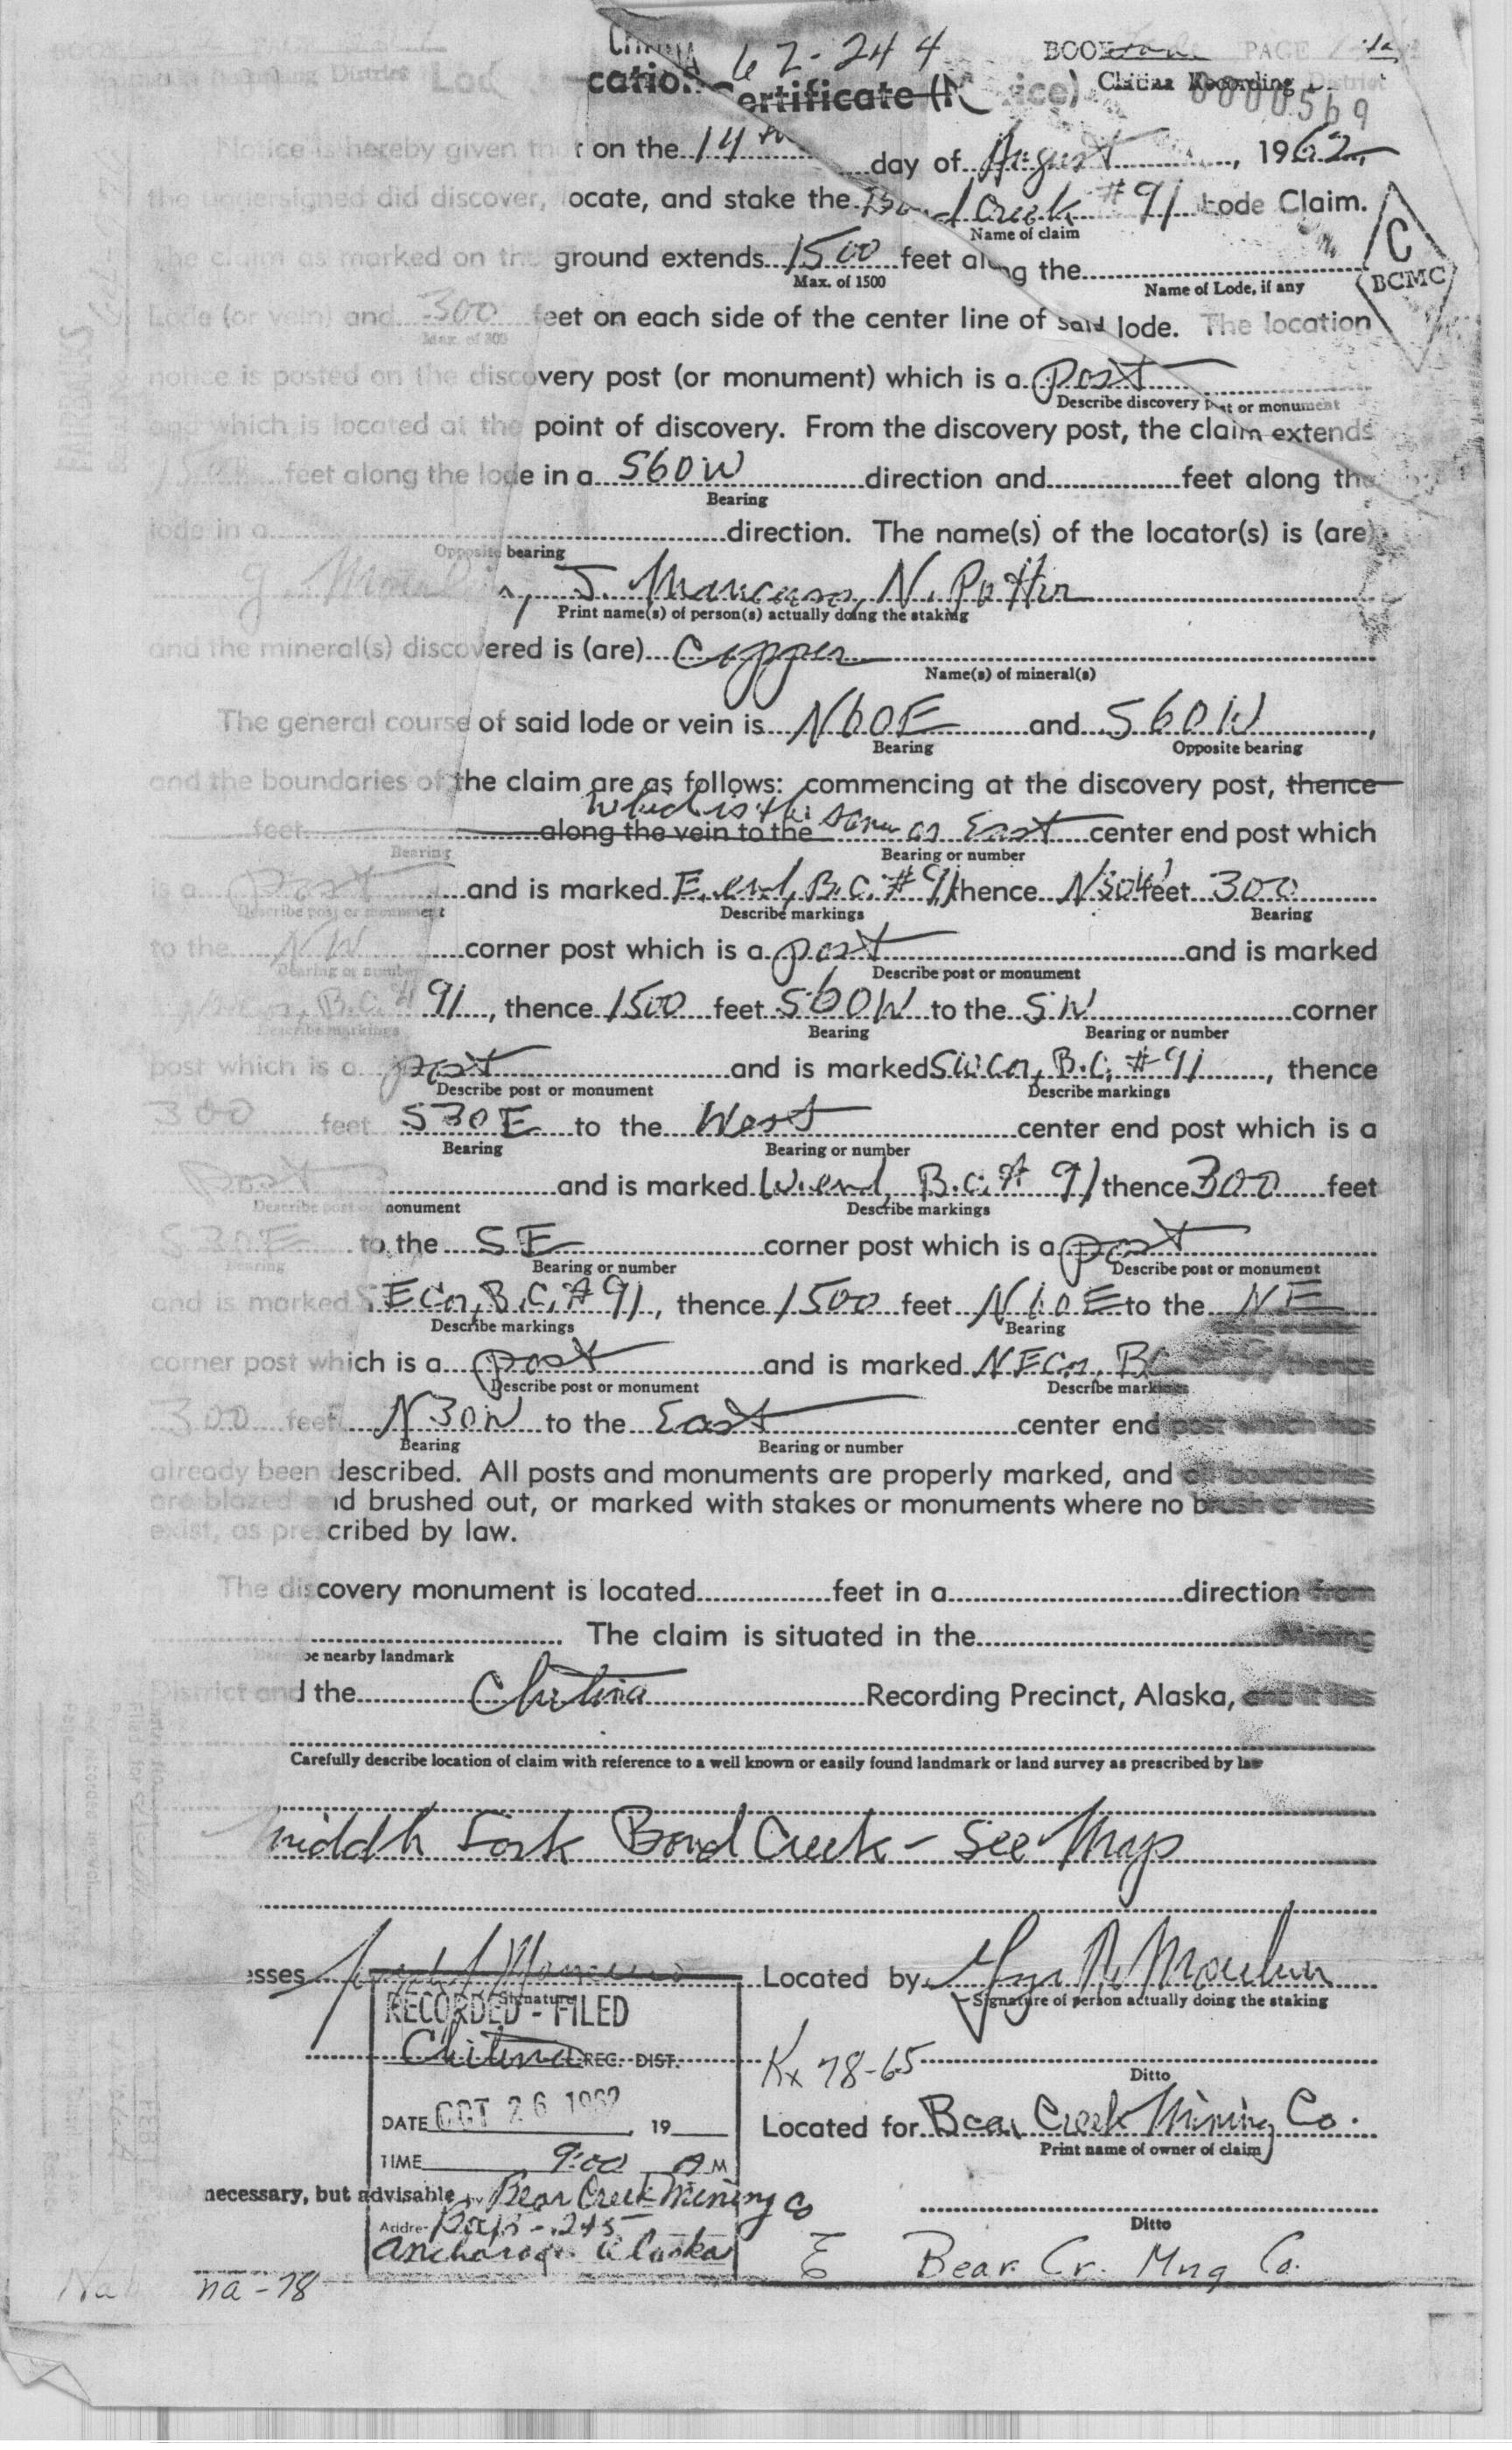 62-244
BOOK PAGE
Lod cation Certificate (Notice) Chitina Recording District
0000569
Notice is hereby given that on the 14th day of August, 1962,
the undersigned did discover, locate, and stake the Bond Creek #91 Lode Claim.
Name of claim
The claim as marked on the ground extends 1500 feet along the
Max. of 1500 Name of Lode, if any
C
BCMC
Lode (or vein) and 300 feet on each side of the center line of said lode. The location
Max. of 300
notice is posted on the discovery post (or monument) which is a post
Describe discovery post or monument
and which is located at the point of discovery. From the discovery post, the claim extends
1500 feet along the lode in a S60W direction and feet along the
Bearing
lode in a direction. The name(s) of the locator(s) is (are)
Opposite bearing
J. Mancuso, N. Potter
Print name(s) of person(s) actually doing the staking
and the mineral(s) discovered is (are) Copper
Name(s) of mineral(s)
The general course of said lode or vein is N60E and S60W,
Bearing Opposite bearing
and the boundaries of the claim are as follows: commencing at the discovery post, thence
which is the same as East
feet along the vein to the center end post which
Bearing Bearing or number
is a post and is marked E. end, B.C. #91 thence N30W feet 300
Describe post or monument Describe markings Bearing
to the NW corner post which is a post and is marked
Bearing or number Describe post or monument
NW Cor, B.C. #91, thence 1500 feet S60W to the SW corner
Describe markings Bearing Bearing or number
post which is a post and is marked SW Cor, B.C. #91, thence
Describe post or monument Describe markings
300 feet S30E to the West center end post which is a
Bearing Bearing or number
post and is marked W. end, B.C. #91 thence 300 feet
Describe post or monument Describe markings
S30E to the SE corner post which is a post
Bearing Bearing or number Describe post or monument
and is marked SE Cor, B.C. #91, thence 1500 feet N60E to the NE
Describe markings Bearing
corner post which is a post and is marked NE Cor, BC thence
Describe post or monument Describe markings
300 feet N30W to the East center end post which has
Bearing Bearing or number
already been described. All posts and monuments are properly marked, and all boundaries
are blazed and brushed out, or marked with stakes or monuments where no brush or trees
exist, as prescribed by law.
The discovery monument is located feet in a direction from
. The claim is situated in the Mining
be nearby landmark
District and the Chitina Recording Precinct, Alaska, and it lies
Carefully describe location of claim with reference to a well known or easily found landmark or land survey as prescribed by law
Middle Fork Bond Creek - See Map
esses Joseph Mancuso Located by
Signature Signature of person actually doing the staking
RECORDED - FILED
Chitina REC. DIST. Kx 78-65
Ditto
DATE OCT 26 1962, 19
Located for Bear Creek Mining Co.
Print name of owner of claim
TIME 9:00 A M
necessary, but advisable Bear Creek Mining Co
Ditto
Addre-
Anchorage Alaska
E Bear Cr. Mng Co.
Nab na-78